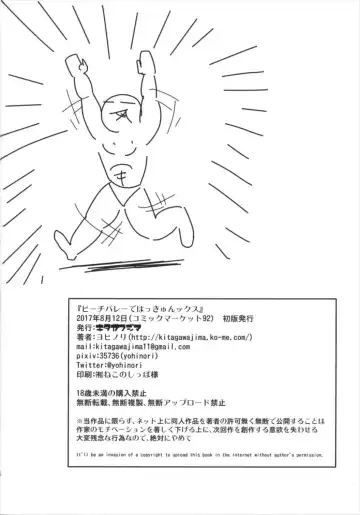 『ビーチバレーではっきゅんックス』
2017年8月12日(コミックマーケット92) 初版発行
発行:キタガワジマ
著者:ヨヒノリ(http://kitagawajima.ko-me.com/)
mail:kitagawajima11@gmail.com
pixiv:35736(yohinori)
Twitter:@yohinori
印刷:㈲ねこのしっぽ様
18歳未満の購入禁止
無断転載、無断複製、無断アップロード禁止
※当作品に限らず、ネット上に同人作品を著者の許可無く無断で公開することは
作家のモチベーションを著しく下げる上に、次回作を創作する意欲を失わせる
大変残念な行為なので、絶対にやめて
It'll be an invasion of a copyright to upload this book in the internet without author's permission.